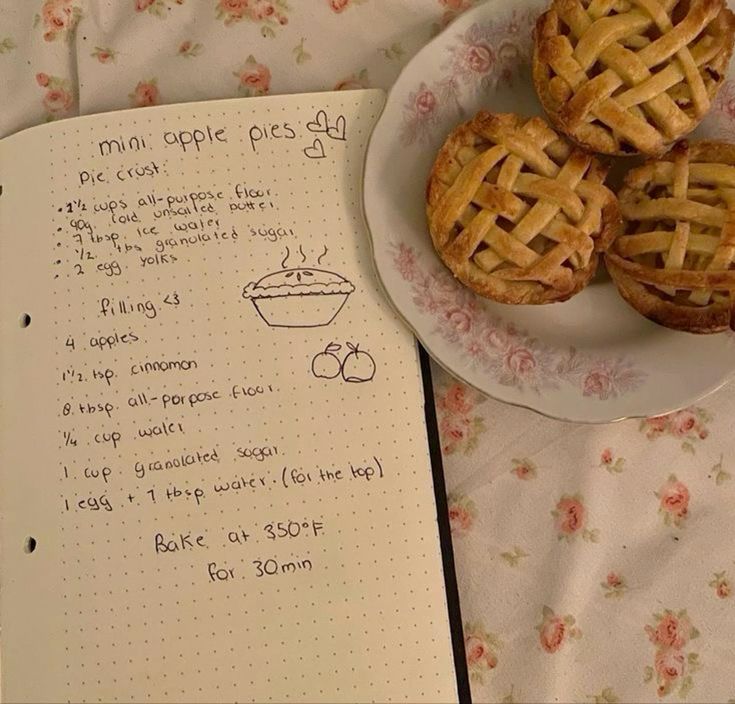 mini apple pies
pie crust:
• 1½ cups all-purpose flour
• 90g cold unsalted butter
• 7 tbsp ice water
• ½ tbs granulated sugar
• 2 egg yolks
filling <3
4 apples
1½ tsp. cinnamon
8 tbsp. all-porpose flour.
¼ cup water
1 cup granulated sugar.
1 egg + 1 tbsp water. (for the top)
Bake at 350°F
for 30min